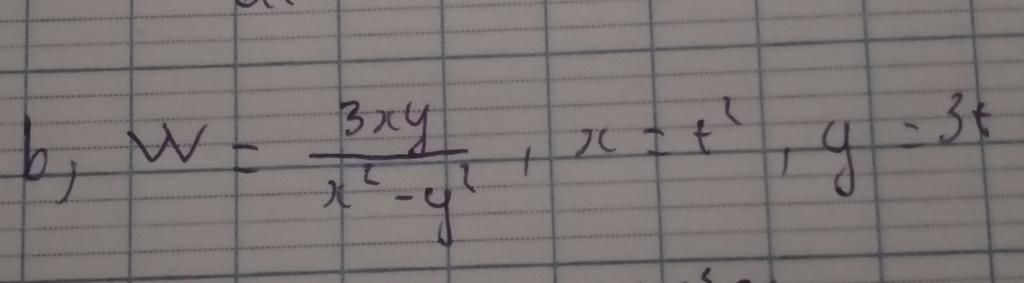 b, W = 3xy / x² - y² , x = t² , y = 3t